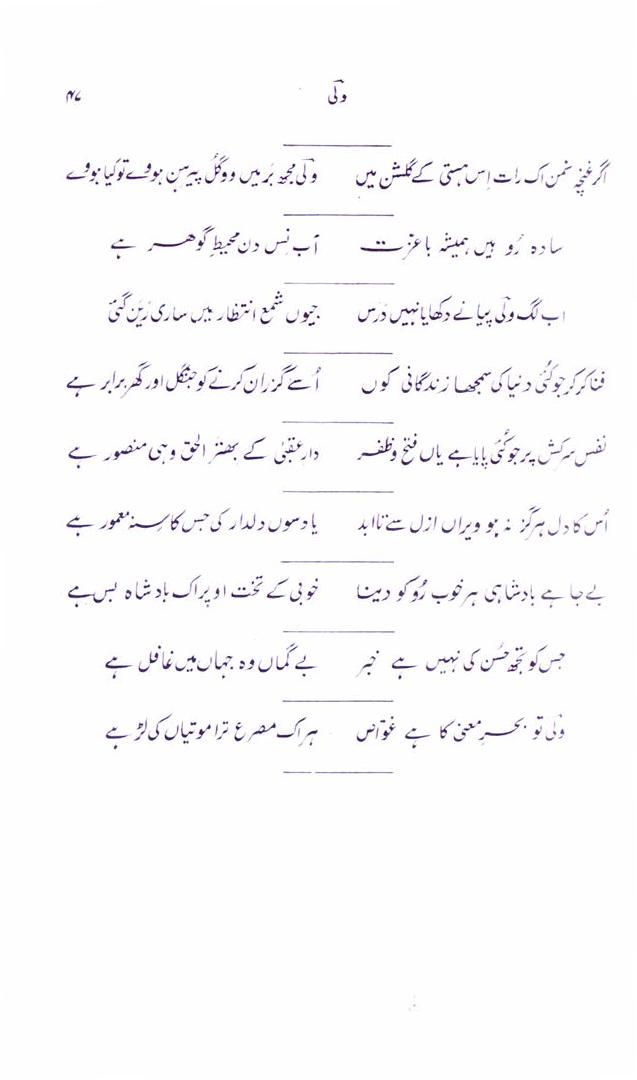 ولی ۴۷
اگر غنچہ نمن اک رات اِس ہستی کے گلشن میں ولی مجھ بَر میں وو گُل پیرہن ہووے تو کیا ہووے
سادہ رُو ہیں ہمیشہ باعزت آب نِس دن محیطِ گوہر ہے
اب لگ ولی پیا نے دکھایا نہیں دَرس جیوں شمع انتظار میں ساری رَین گئی
فنا کر کر جو کُئی دنیا کی سمجھا زندگانی کوں اُسے گزران کرنے کو جنگل اور گھر برابر ہے
نفسِ سرکش پر جو کُئی پایا ہے یاں فتح و ظفر دارِ عقبیٰ کے بھتر الحق وہی منصور ہے
اُس کا دل ہرگز نہ ہو ویراں ازل سے تا ابد یاد سوں دلدار کی جس کا سینہ معمور ہے
بے جا ہے بادشاہی ہر خوب رُو کو دینا خوبی کے تخت اوپر اک بادشاہ بس ہے
جس کو تجھ حُسن کی نہیں ہے خبر بے گماں وہ جہاں میں غافل ہے
ولی تو بحرِ معنی کا ہے غوّاص ہر اک مصرع ترا موتیاں کی لڑ ہے